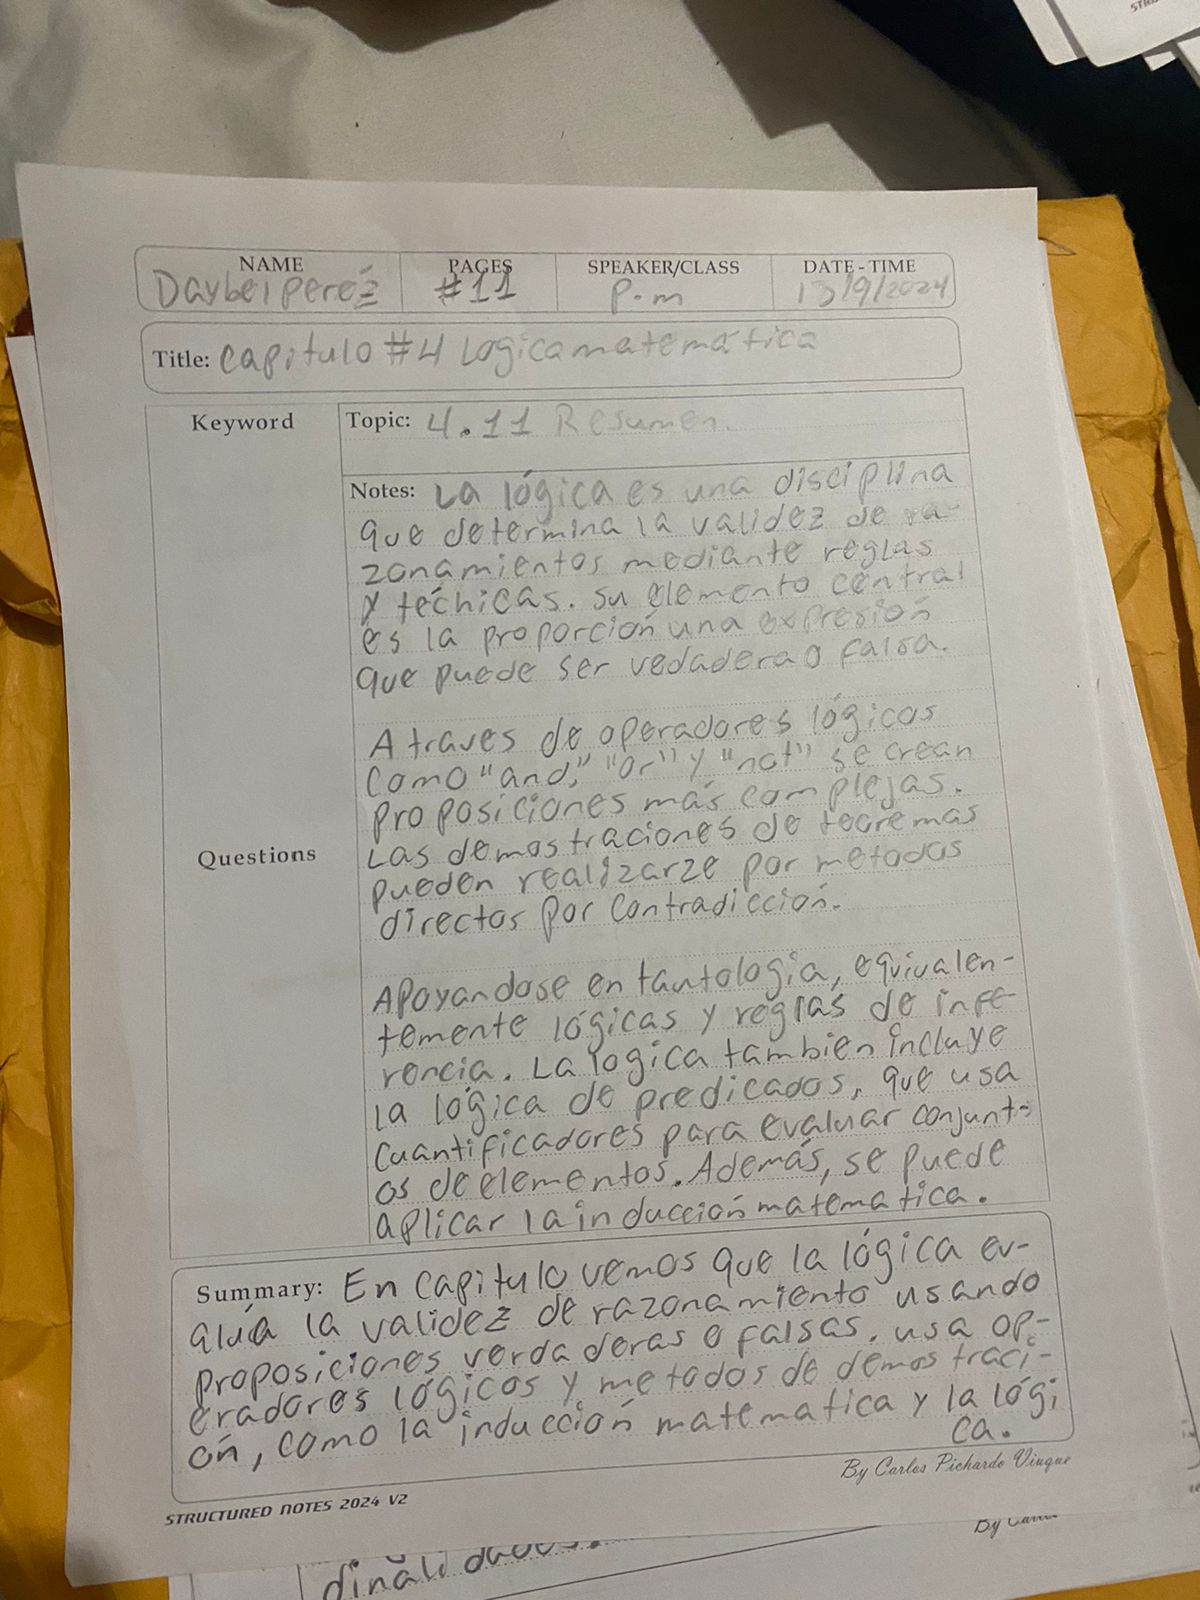 NAME PAGES SPEAKER/CLASS DATE - TIME
Daybei pereź #11 P.m 13/9/2024
Title: capitulo #4 Logica matemática
Keyword
Topic: 4.11 Resumen.
Notes: La lógica es una disciplina
que determina la validez de ra-
zonamientos mediante reglas
y téchicas. su elemento central
es la proporción una expresión
que puede ser vedadera o falsa.
A traves de operadores lógicos
como "and," "or" y "not" se crean
proposiciones más complejas.
Las demostraciones de teoremas
pueden realizarze por metodos
directos por contradicción.
Questions
Apoyandose en tautologia, equivalen-
temente lógicas y reglas de infe-
rencia. La logica tambien incluye
la lógica de predicados, que usa
cuantificadores para evaluar conjunt-
os de elementos. Además, se puede
aplicar la inducción matematica.
Summary: En capitulo vemos que la lógica ev-
alúa la validez de razonamiento usando
proposiciones verdaderas o falsas. usa op-
eradores lógicos y metodos de demostraci-
ón, como la inducción matematica y la lógi
ca.
By Carlos Pichardo Viuque
STRUCTURED NOTES 2024 V2
By